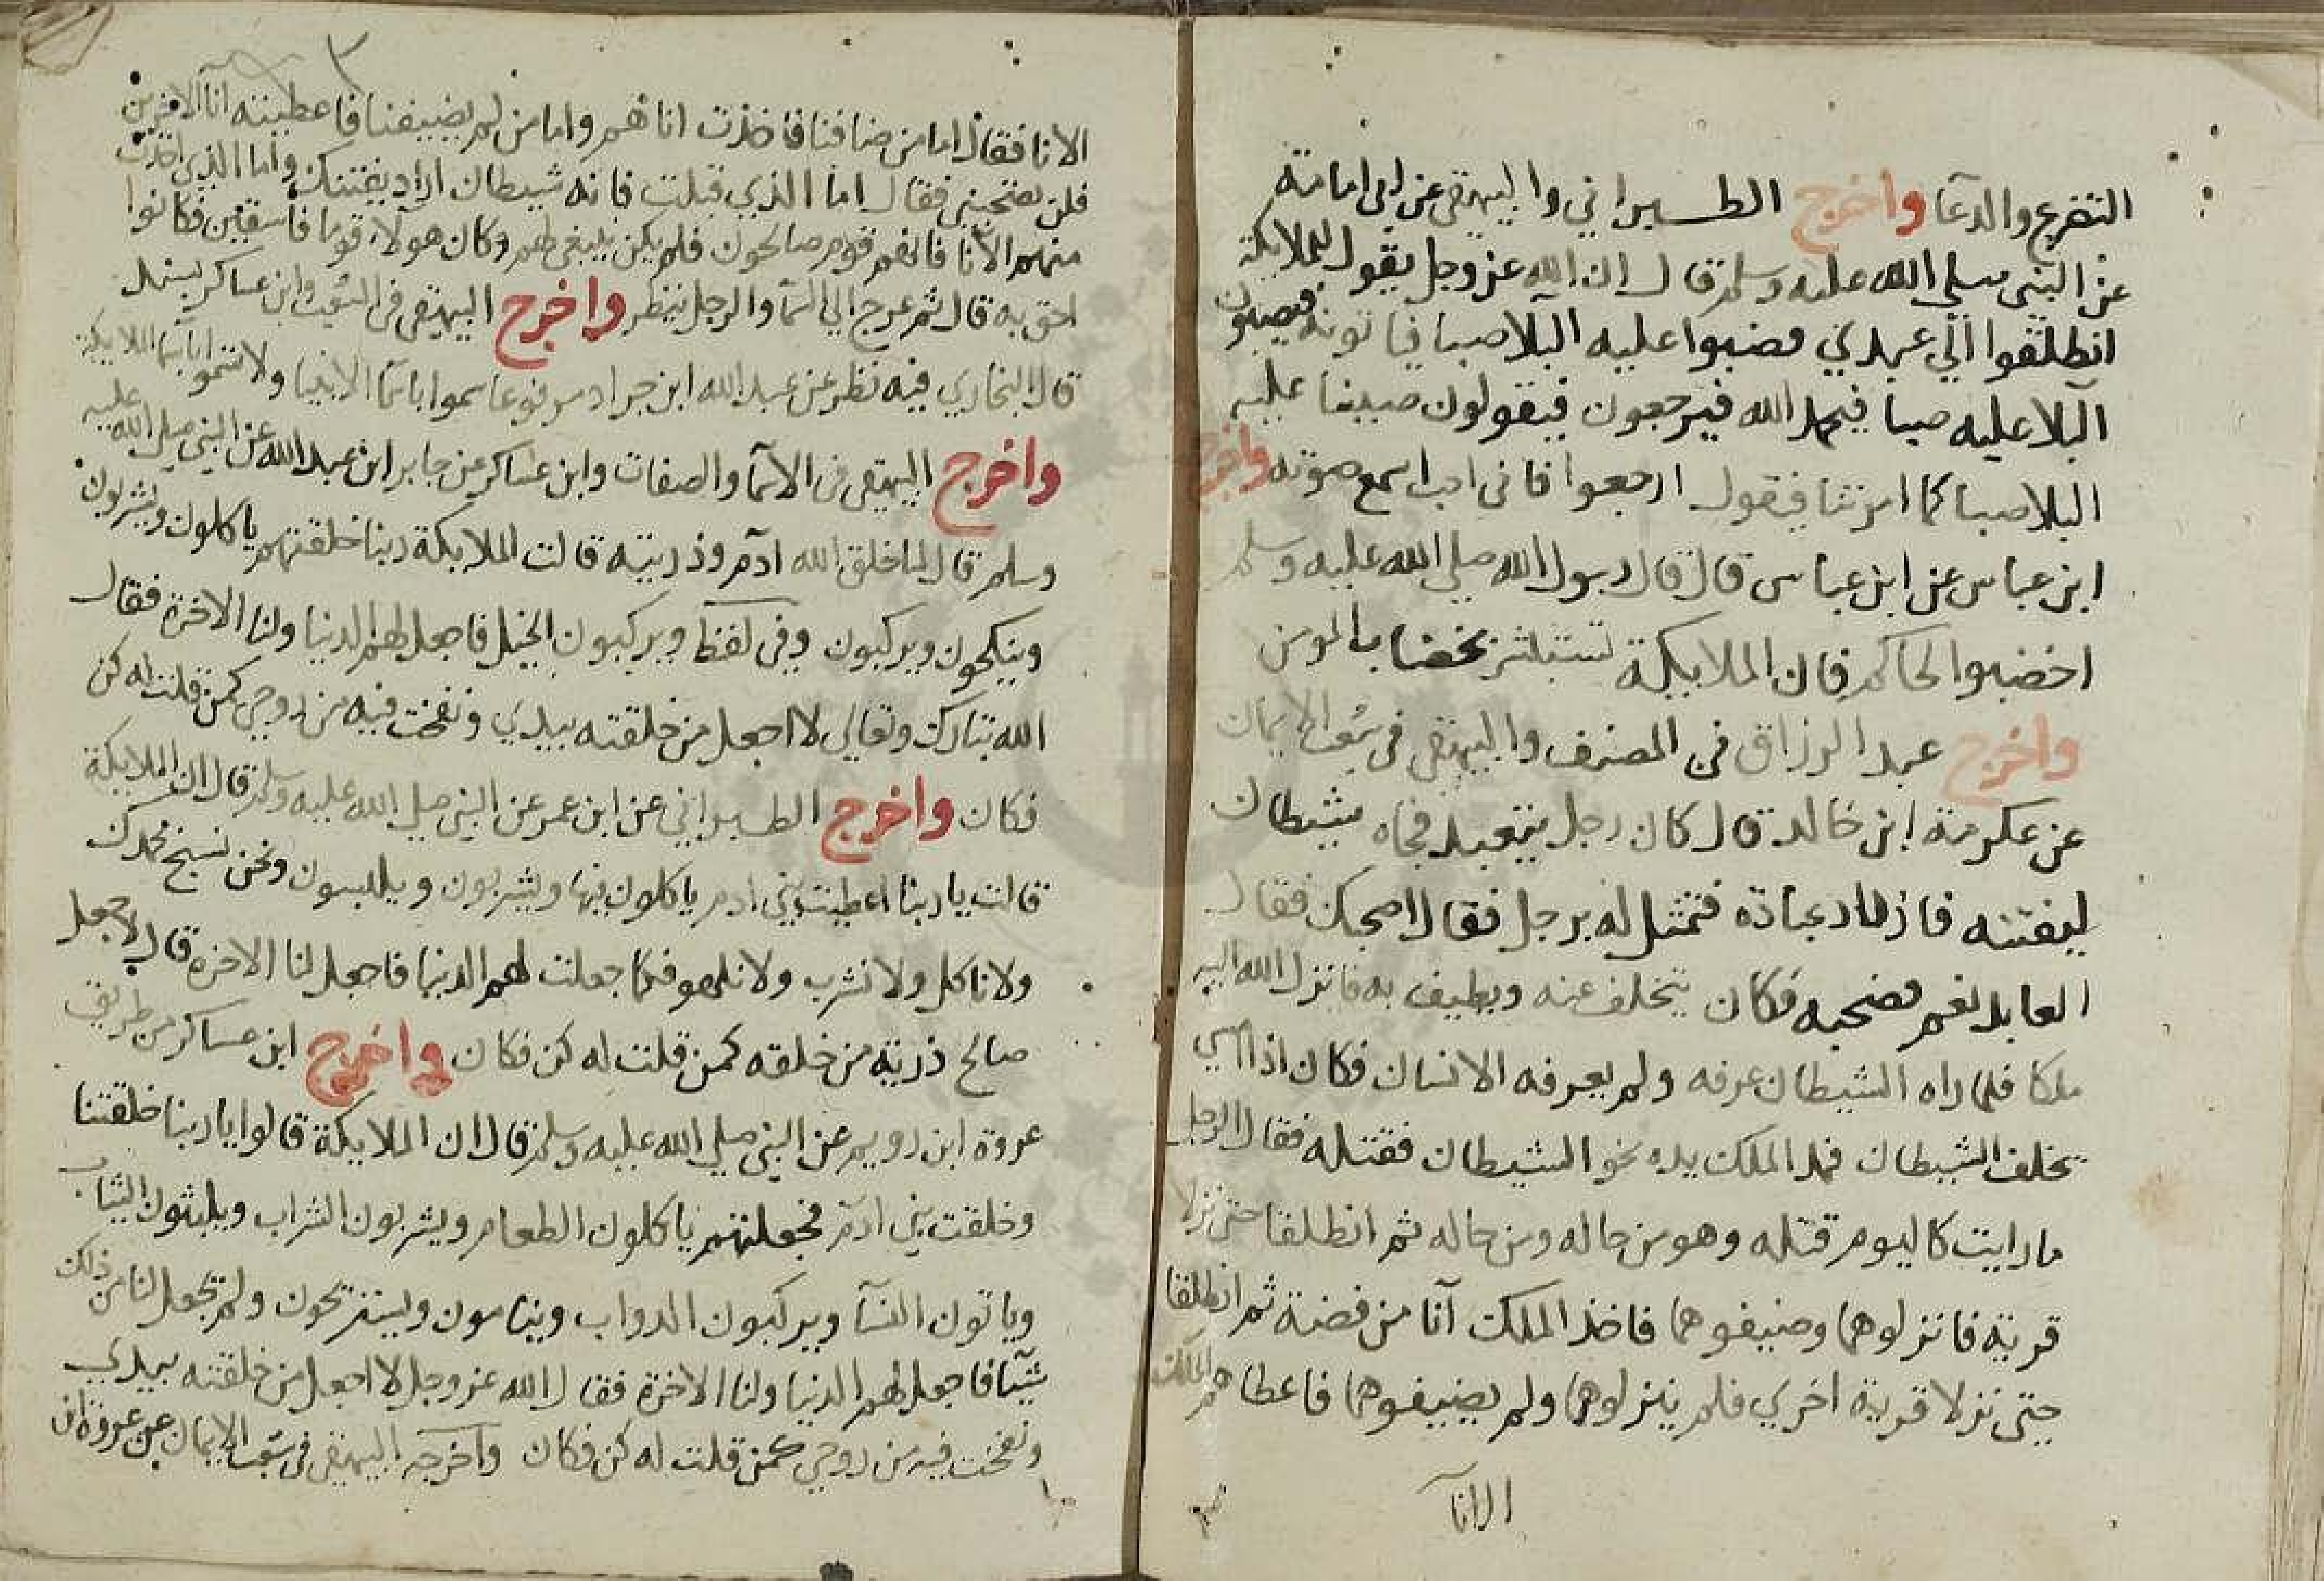 التضرع والدعآ واخرج الطبراني والبيهقي عن ابي امامة
عن النبي صلي الله عليه وسلم قال ان الله عز وجل يقول للملايكة
انطلقوا الي عبدي فصبوا عليه البلا صبا فياتونه فيصبون
البلا عليه صبا فيحمد الله فيرجعون فيقولون صببنا عليه
البلا صبا كما امرتنا فيقول ارجعوا فاني احب اسمع صوته واخرج
ابن عباس عن ابن عباس قال قال رسول الله صلي الله عليه وسلم
اخضبوا لحاكم فان الملايكة تستبشر بخضاب المومن
واخرج عبد الرزاق في المصنف والبيهقي في شعب الايمان
عن عكرمة ابن خالد قال كان رجل يتعبد فجاه شيطان
ليفتنه فازداد عبادة فتمثل له برجل فقال اصحبك فقال
العابد نعم فصحبه فكان يتخلف عنه ويطيف به فانزل الله اليه
ملكا فلما راه الشيطان عرفه ولم يعرفه الانسان فكان اذا امسي
تخلف الشيطان فمد الملك يده نحو الشيطان فقتله فقال الرجل
ما رايت كاليوم قتله وهو من حاله ومن حاله ثم انطلقا حتي نزلا
قرية فانزلوهما وضيفوهما فاخذ الملك آنا من فضة ثم انطلقا
حتي نزلا قرية اخري فلم ينزلوهما ولم يضيفوهما فاعطاهم الملك
الانآ
٣
الانا فقال اما من ضافنا فاخذت اناهم واما من لم يضيفنا فاعطيته انا الاخرين
فلن تصحبني فقال اما الذي قتلت فانه شيطان اراد يفتنك واما الذي اخذت
منهم الآنا فانهم قوم صالحون فلم يكن ينبغي لهم وكان هولآ قوما فاسقين فكانوا
احق به قال ثم عرج الي السما والرجل ينظر واخرج البيهقي في الشعب وابن عساكر بسند
قال البخاري فيه نظر عن عبد الله ابن جراد مرفوعا سموا باسما الانبيا ولا تسموا باسما الملايكة
واخرج البيهقي في الاسما والصفات وابن عساكر عن جابر ابن عبد الله عن النبي صلي الله عليه
وسلم قال لما خلق الله ادم وذريته قالت الملايكة ربنا خلقتهم ياكلون ويشربون
وينكحون ويركبون وفي لفظ ويركبون الخيل فاجعل لهم الدنيا ولنا الاخرة فقال
الله تبارك وتعالي لا اجعل من خلقته بيدي ونفخت فيه من روحي كمن قلت له كن
فكان واخرج الطبراني عن ابن عمر عن النبي صلي الله عليه وسلم قال ان الملايكة
قالت يا ربنا اعطيت بني ادم ياكلون فيها ويشربون ويلبسون ونحن نسبح بحمدك
ولا ناكل ولا نشرب ولا نلهو فكما جعلت لهم الدنيا فاجعل لنا الاخرة قال لا اجعل
صالح ذرية من خلقه كمن قلت له كن فكان واخرج ابن عساكر من طريق
عروة ابن رويم عن النبي صلي الله عليه وسلم قال ان الملايكة قالوا يا ربنا خلقتنا
وخلقت بني ادم فجعلتهم ياكلون الطعام ويشربون الشراب ويلبثون الثياب
وياتون النسآ ويركبون الدواب وينامون ويستريحون ولم تجعل لنا من ذلك
شيئا فاجعل لهم الدنيا ولنا الاخرة فقال الله عز وجل لا اجعل من خلقته بيدي
ونفخت فيه من روحي كمن قلت له كن فكان واخرجه البيهقي في شعب الايمان عن عروة ابن